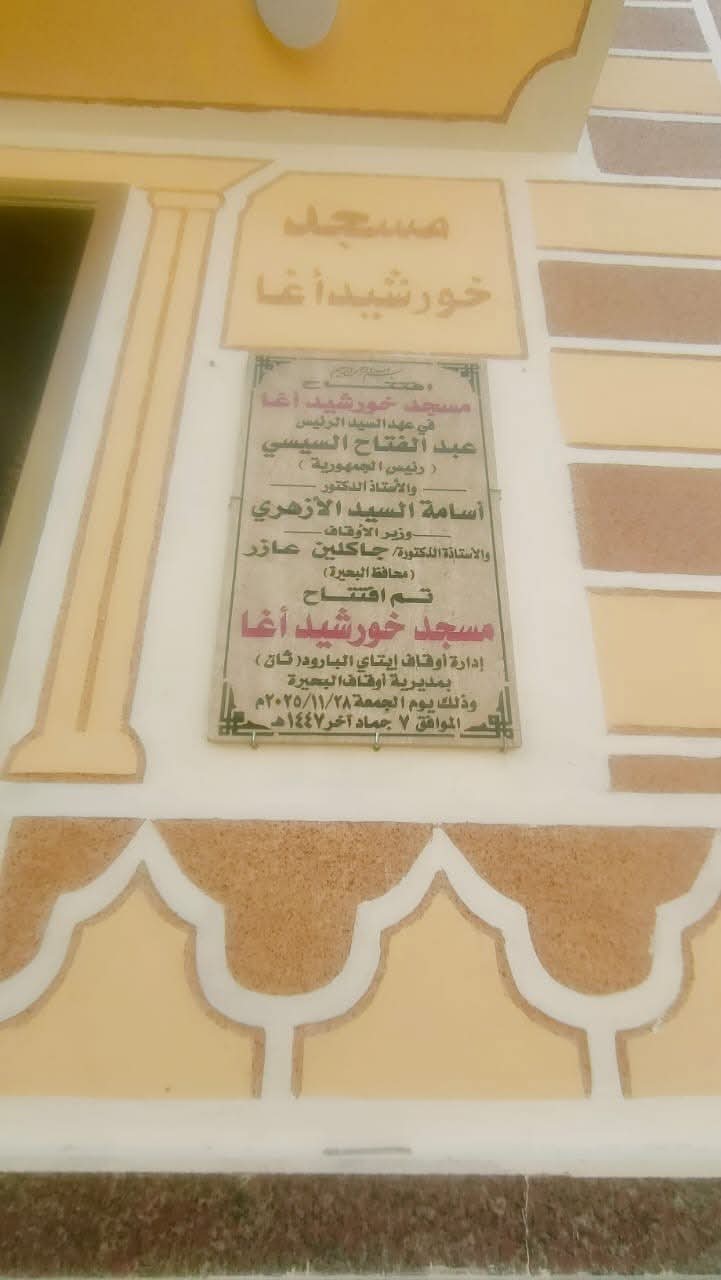 مسجد
خورشيد أغا
بسم الله الرحمن الرحيم
افتتاح
مسجد خورشيد أغا
في عهد السيد الرئيس
عبد الفتاح السيسي
( رئيس الجمهورية )
والأستاذ الدكتور
أسامة السيد الأزهري
وزير الأوقاف
والاستاذة الدكتورة/ جاكلين عازر
(محافظ البحيرة)
تم افتتاح
مسجد خورشيد أغا
إدارة أوقاف إيتاي البارود( ثان )
بمديرية أوقاف البحيرة
وذلك يوم الجمعة ٢٠٢٥/١١/٢٨م
الموافق ٧ جماد آخر ١٤٤٧هـ